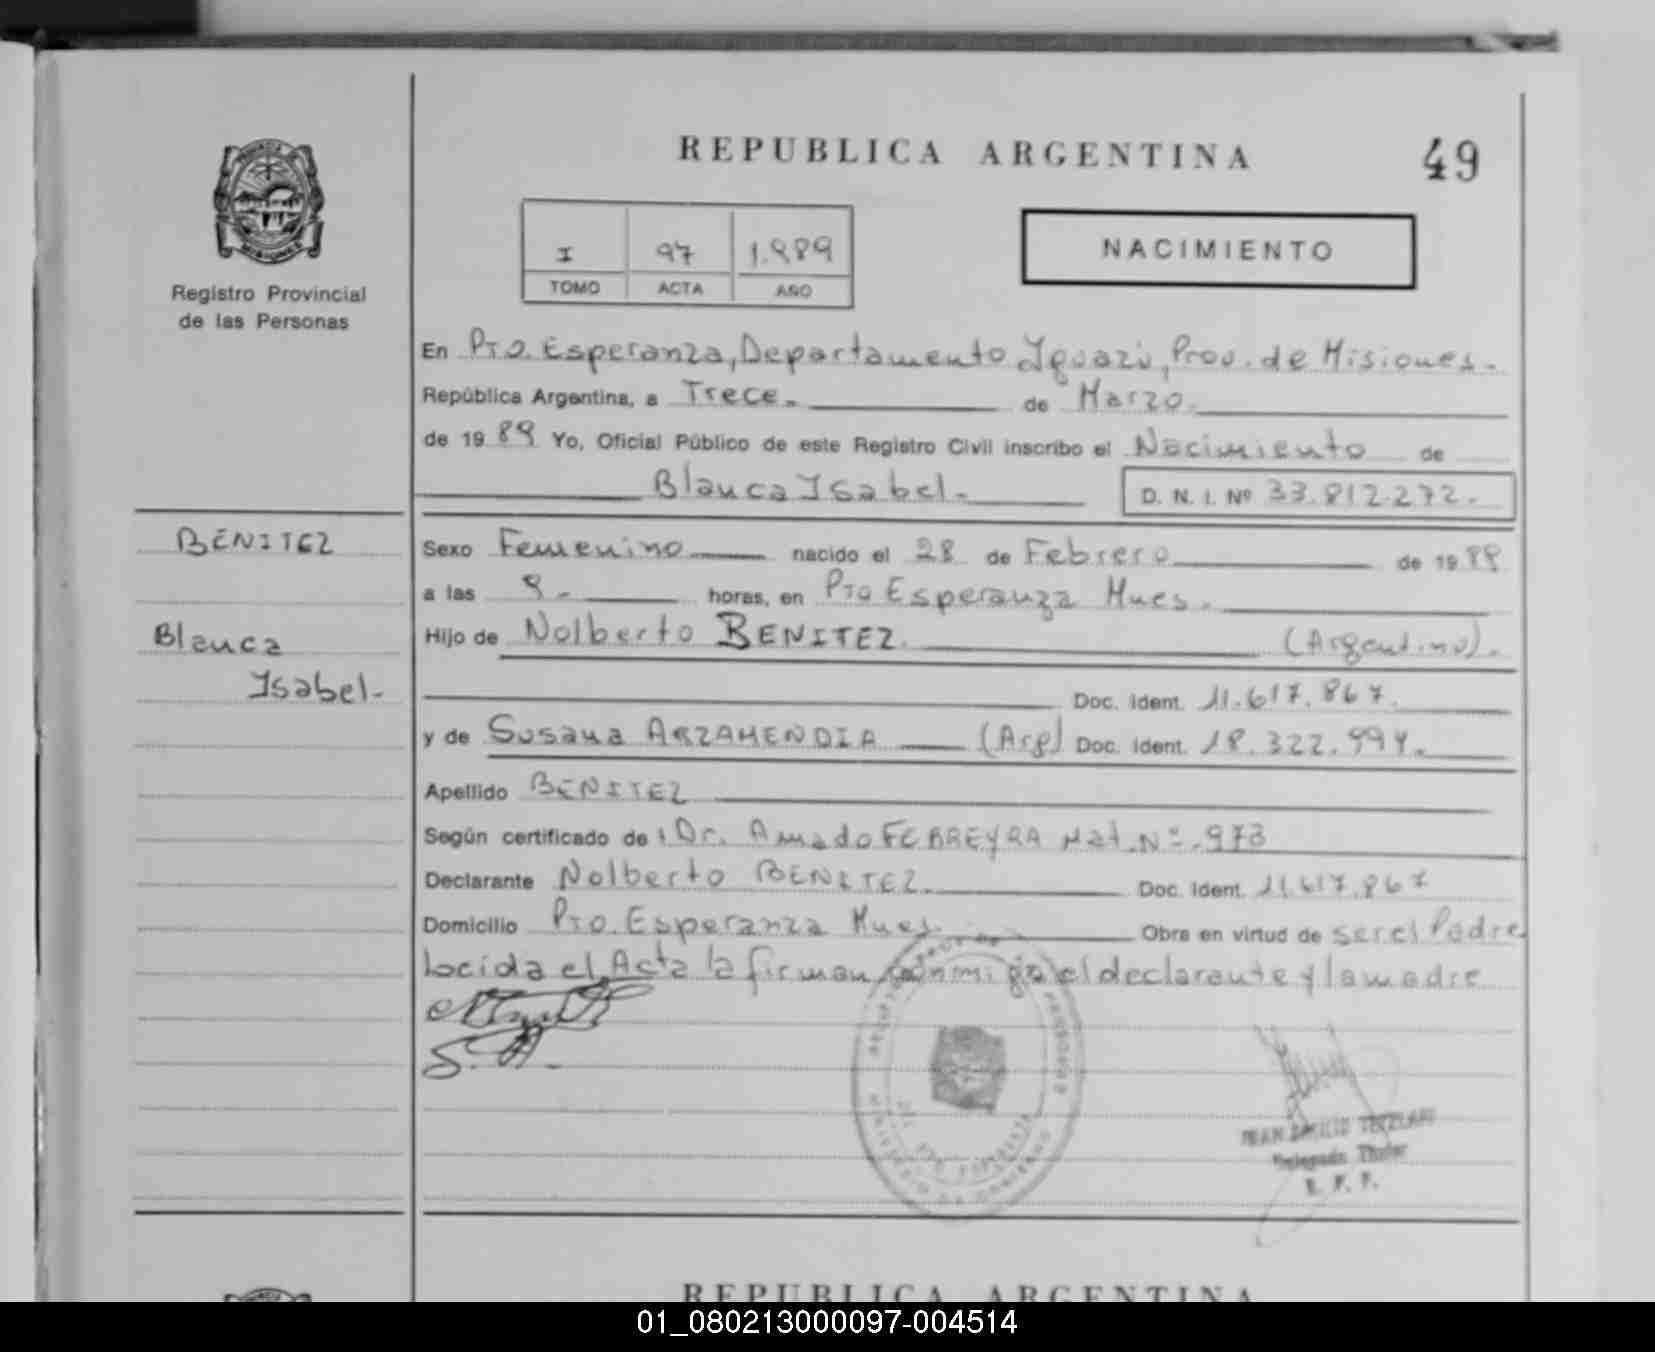 REPUBLICA ARGENTINA
49
I 97 1.989
TOMO ACTA AÑO
NACIMIENTO
Registro Provincial
de las Personas
En Pto. Esperanza, Departamento Iguazú, Prov. de Misiones.
República Argentina, a Trece. de Marzo.
de 19 89 Yo, Oficial Público de este Registro Civil inscribo el Nacimiento de
Blanca Isabel.
D. N. I. Nº 33.812.272.
BENITEZ
Blanca
Isabel.
Sexo Femenino nacido el 28 de Febrero de 19 89
a las 9. horas, en Pto Esperanza Mnes.
Hijo de Nolberto BENITEZ. (Argentino).
Doc. Ident. 11.617.867.
y de Susana ARZAMENDIA (Arg) Doc. Ident. 18.322.994.
Apellido BENITEZ
Según certificado de: Dr. Amado FERREYRA Mat. Nº. 973
Declarante Nolberto BENITEZ. Doc. Ident. 11.617.867
Domicilio Pto. Esperanza Mnes. Obra en virtud de ser el Padre
Lecida el Acta la firman conmigo el declarante y la madre
MINISTERIO DE GOBIERNO
PTO. ESPERANZA
Delegado Titular
R. P. P.
REPUBLICA ARGENTINA
01_080213000097-004514